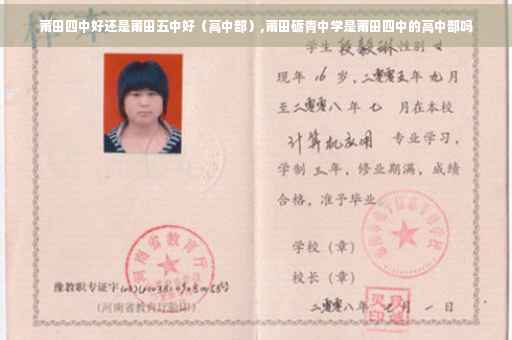 莆田四中好还是莆田五中好（高中部）,莆田砺青中学是莆田四中的高中部吗
样本
学生 段毅琳 性别 女
现年 16 岁，二零零五年 九月
至二零零八年 七 月在本校
计算机应用 专业学习，
学制 三 年，修业期满，成绩
合格，准予毕业
学校（章）
校长（章）
二零零八年 七 月 一 日
河南省教育厅
豫教职专证字
（河南省教育厅验印）